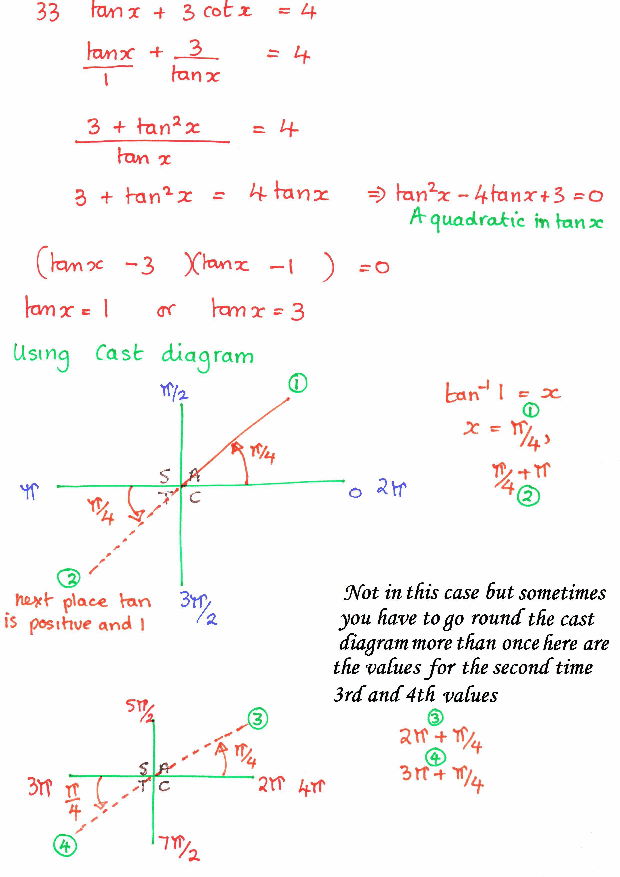 33 tan x + 3 cot x = 4
tanx/1 + 3/tanx = 4
3 + tan²x / tan x = 4
3 + tan²x = 4 tanx ⇒ tan²x - 4tanx + 3 = 0
A quadratic in tan x
(tanx - 3 )(tanx - 1 ) = 0
tan x = 1 or tanx = 3
Using Cast diagram
π/2
①
tan⁻¹ 1 = x
①
x = π/4,
π/4 + π
②
π/4
S A
T C
π
0 2π
π/4
②
3π/2
next place tan
is positive and 1
Not in this case but sometimes
you have to go round the cast
diagram more than once here are
the values for the second time
3rd and 4th values
③
2π + π/4
④
3π + π/4
5π/2
③
π/4
S A
T C
3π
π/4
2π 4π
④
7π/2